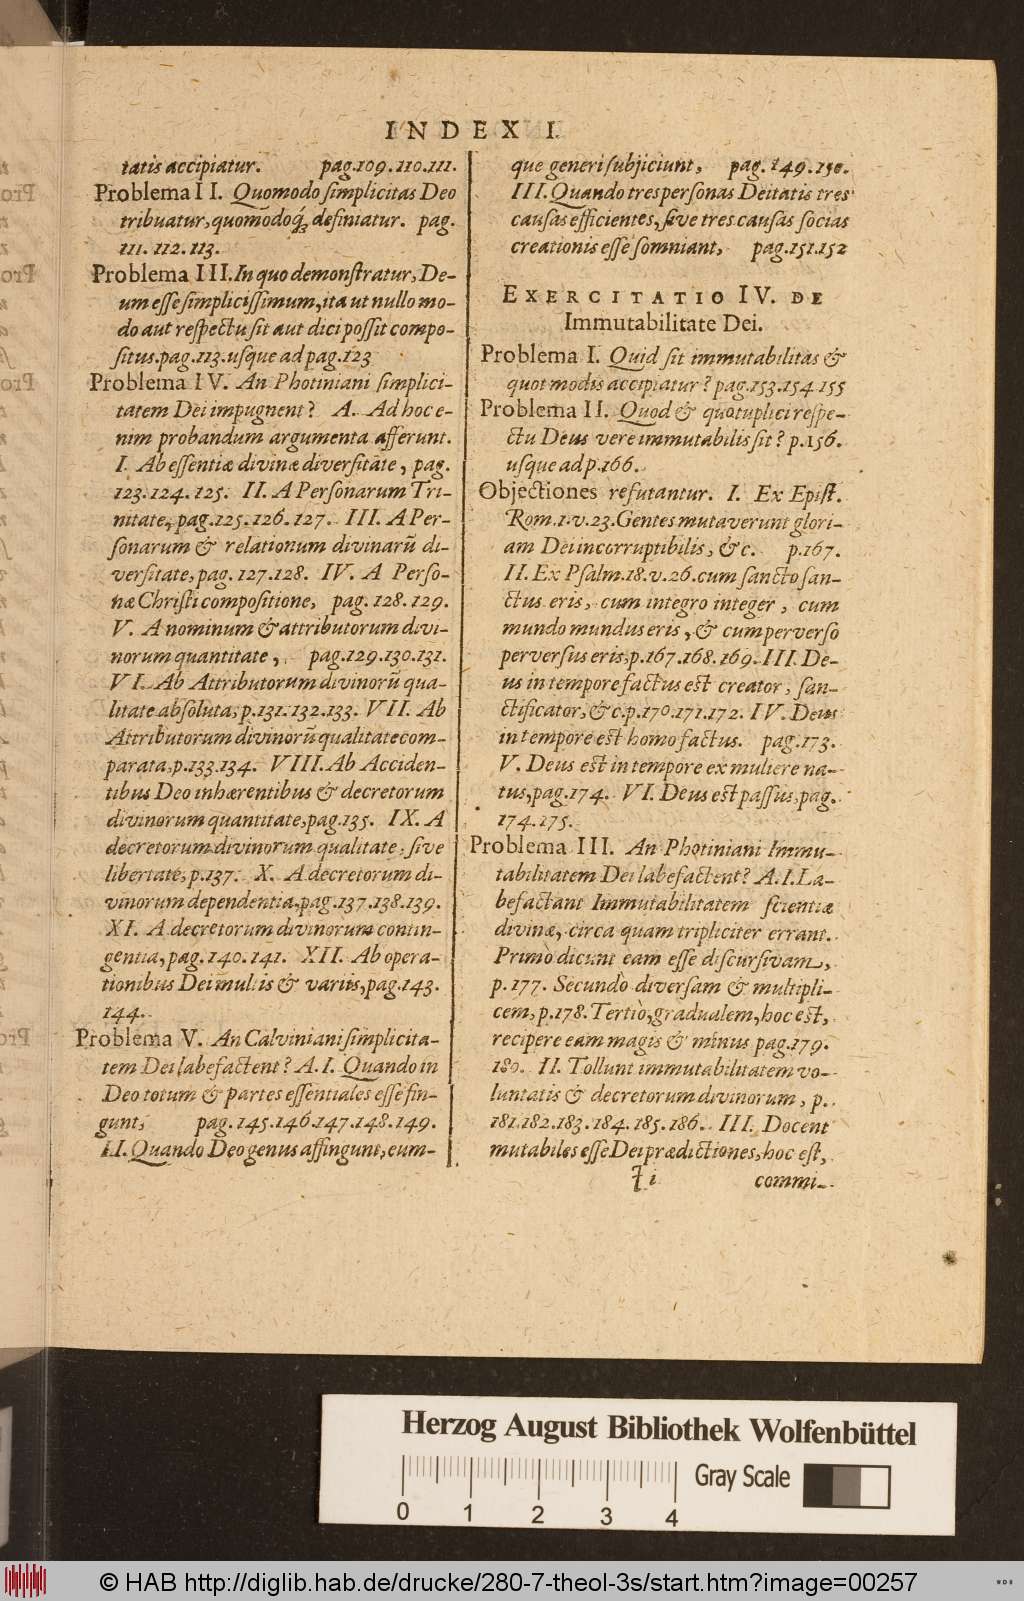 INDEX I.
tatis accipiatur. pag.109.110.111.
Problema II. Quomodo simplicitas Deo
tribuatur, quomodoq́; definiatur. pag.
111. 112. 113.
Problema III. In quo demonstratur, De-
um esse simplicissimum, ita ut nullo mo-
do aut respectu sit aut dici possit compo-
situs. pag. 113. usque ad pag. 123
Problema IV. An Photiniani simplici-
tatem Dei impugnent? A. Ad hoc e-
nim probandum argumenta afferunt.
I. Ab essentiæ divinæ diversitate, pag.
123. 124. 125. II. A Personarum Tri-
nitate, pag. 125. 126. 127. III. A Per-
sonarum & relationum divinarū di-
versitate, pag. 127. 128. IV. A Perso-
næ Christi compositione, pag. 128. 129.
V. A nominum & attributorum divi-
norum quantitate, pag. 129. 130. 131.
VI. Ab Attributorum divinorū qua-
litate absoluta, p. 131. 132. 133. VII. Ab
Attributorum divinorū qualitate com-
parata, p. 133. 134. VIII. Ab Acciden-
tibus Deo inhærentibus & decretorum
divinorum quantitate, pag. 135. IX. A
decretorum divinorum qualitate, sive
libertate, p. 137. X. A decretorum di-
vinorum dependentia, pag. 137. 138. 139.
XI. A decretorum divinorum contin-
gentia, pag. 140. 141. XII. Ab opera-
tionibus Dei multis & variis, pag. 143.
144.
Problema V. An Calviniani simplicita-
tem Dei labefactent? A. I. Quando in
Deo totum & partes essentiales esse fin-
gunt, pag. 145. 146. 147. 148. 149.
II. Quando Deo genus affingunt, eum-
que generi subjiciunt, pag. 149. 150.
III. Quando tres personas Deitatis tres
causas efficientes, sive tres causas socias
creationis esse somniant, pag. 151. 152
EXERCITATIO IV. DE
Immutabilitate Dei.
Problema I. Quid sit immutabilitas &
quot modis accipiatur? pag. 153. 154. 155
Problema II. Quod & quotuplici respe-
ctu Deus vere immutabilis sit? p. 156.
usque ad p. 166.
Objectiones refutantur. I. Ex Epist.
Rom. 1. v. 23. Gentes mutaverunt glori-
am Dei incorruptibilis, &c. p. 167.
II. Ex Psalm. 18. v. 26. cum sancto san-
ctus eris, cum integro integer, cum
mundo mundus eris, & cum perverso
perversus eris, p. 167. 168. 169. III. De-
us in tempore factus est creator, san-
ctificator, &c. p. 170. 171. 172. IV. Deus
in tempore est homo factus. pag. 173.
V. Deus est in tempore ex muliere na-
tus, pag. 174. VI. Deus est passus, pag.
174. 175.
Problema III. An Photiniani Immu-
tabilitatem Dei labefactent? A. I. La-
befactant Immutabilitatem scientiæ
divinæ, circa quam tripliciter errant.
Primò dicunt eam esse discursivam,
p. 177. Secundò diversam & multipli-
cem, p. 178. Tertiò, gradualem, hoc est,
recipere eam magis & minus pag. 179.
180. II. Tollunt immutabilitatem vo-
luntatis & decretorum divinorum, p.
181. 182. 183. 184. 185. 186. III. Docent
mutabiles esse Dei prædictiones, hoc est,
commi-
Herzog August Bibliothek Wolfenbüttel
Gray Scale
0 1 2 3 4
© HAB http://diglib.hab.de/drucke/280-7-theol-3s/start.htm?image=00257